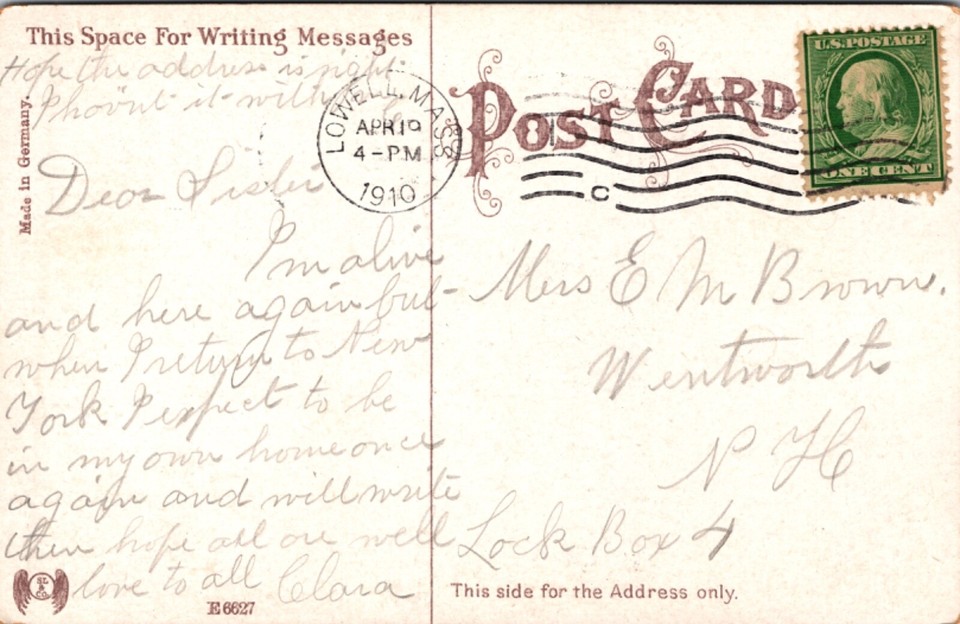 This Space For Writing Messages
Hope the address is right
I hav'nt it with
Made in Germany.
Dear Sister
I'm alive
and here again but
when I return to New
York I expect to be
in my own home once
again and will write
then hope all are well
love to all Clara
SL & Co
E 6627
POST CARD
LOWELL, MASS
APR 19
4-PM
1910
C
U.S. POSTAGE
ONE CENT
Mrs E M Brown.
Wentworth
N H
Lock Box 4
This side for the Address only.